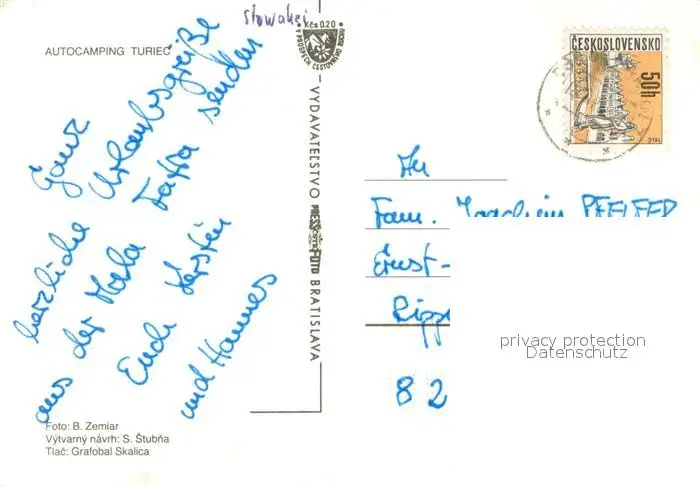 slowakei
AUTOCAMPING TURIEC
Kčs 0.20
V PROSPECH CESTOVNÉHO RUCHU
ČESKOSLOVENSKO
50h
TELČ
Ganz
herzliche Urlaubsgrüße
aus der Mala Fatra senden
Euch Kerstin
und Hannes
VYDAVATEĽSTVO PRESSFOTO BRATISLAVA
An
Fam. Joachim PFEIFER
Ernst-
Ripp
82
privacy protection
Datenschutz
Foto: B. Zemiar
Výtvarný návrh: S. Štubňa
Tlač: Grafobal Skalica